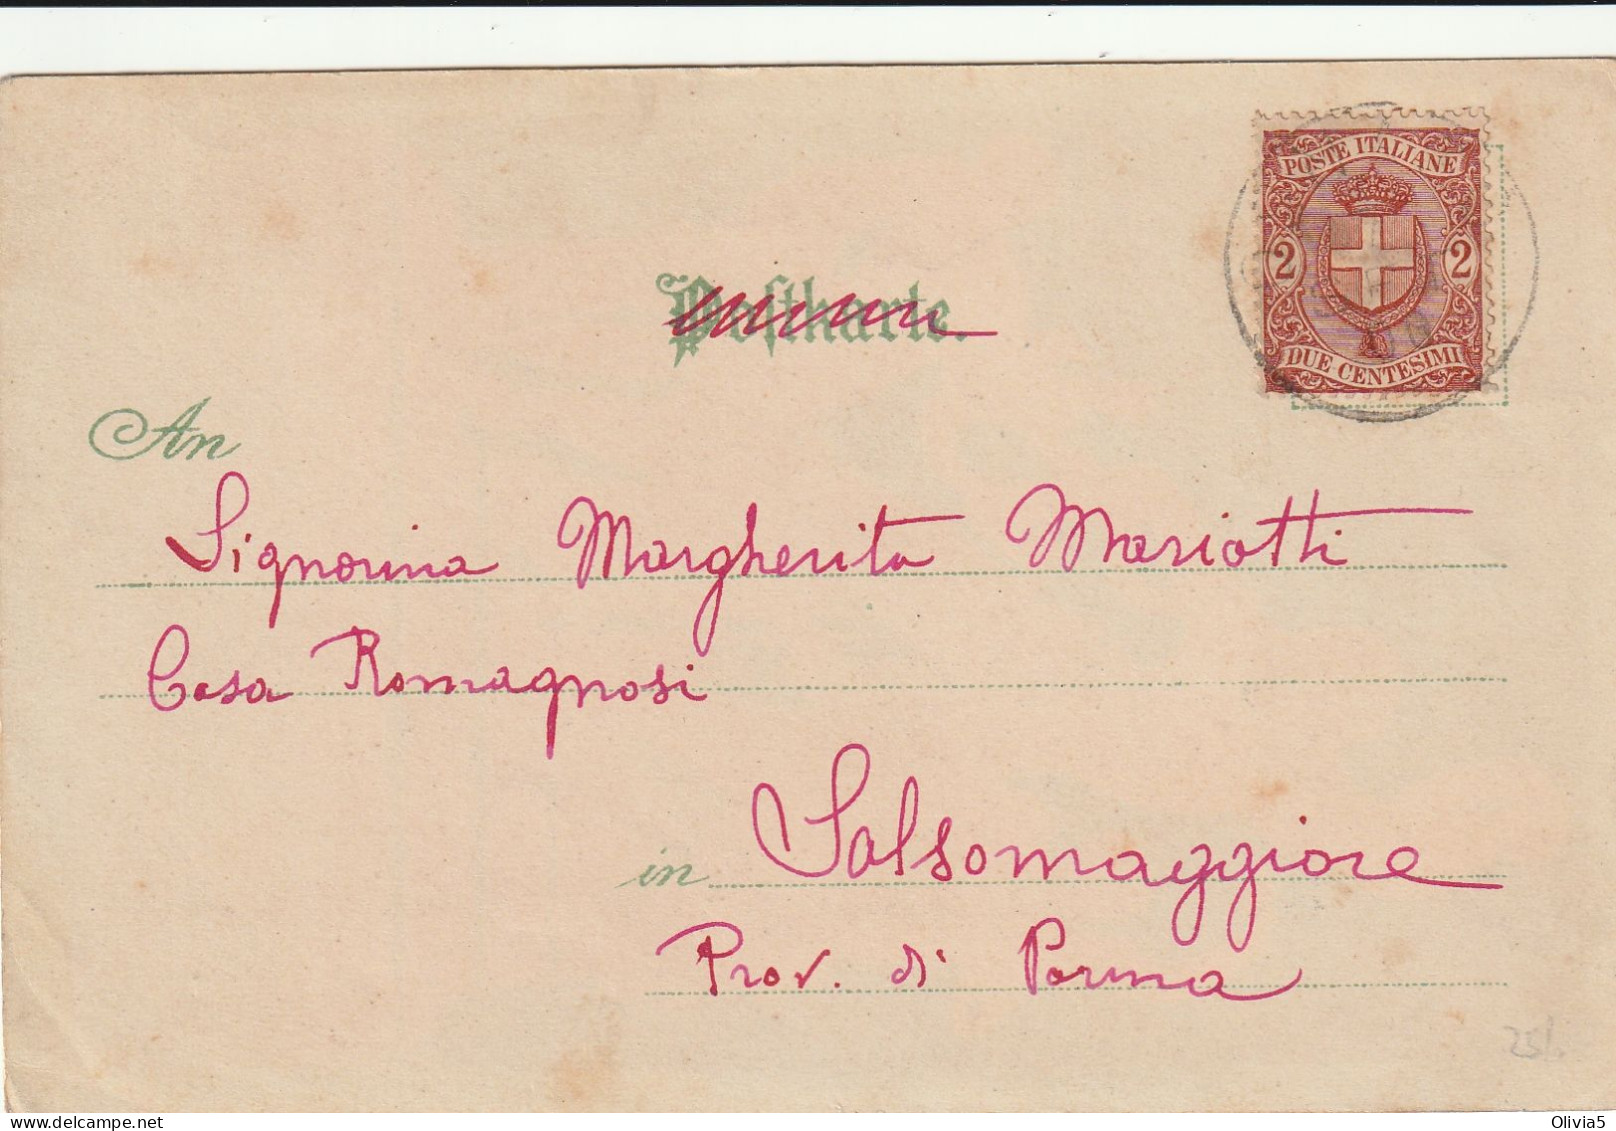 POSTE ITALIANE
2 2
DUE CENTESIMI
Postkarte.
An
Signorina Margherita Mariotti
Casa Romagnosi
in Salsomaggiore
Prov. di Parma
Olivia5